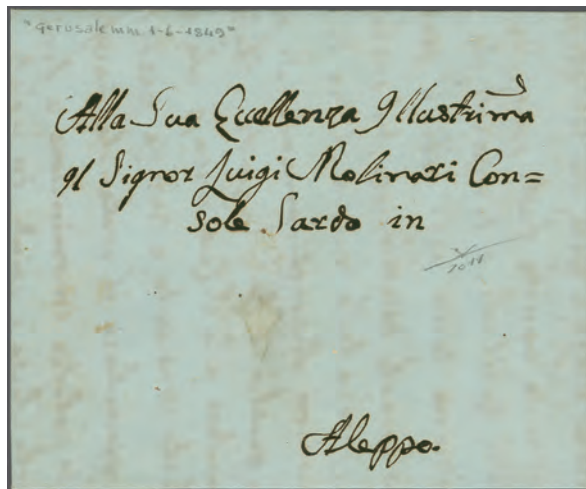 "Gerusalemm. 1-6-1849"
Alla Sua Eccellenza Illustrima
Il Signor Luigi Molinari Con=
sole Sardo in
Aleppo.